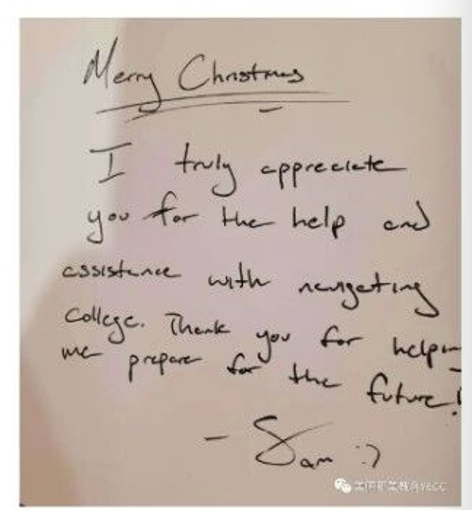 Merry Christmas
I truly appreciate
you for the help and
assistance with navigating
College. Thank you for helping
me prepare for the future!
- Sam :)